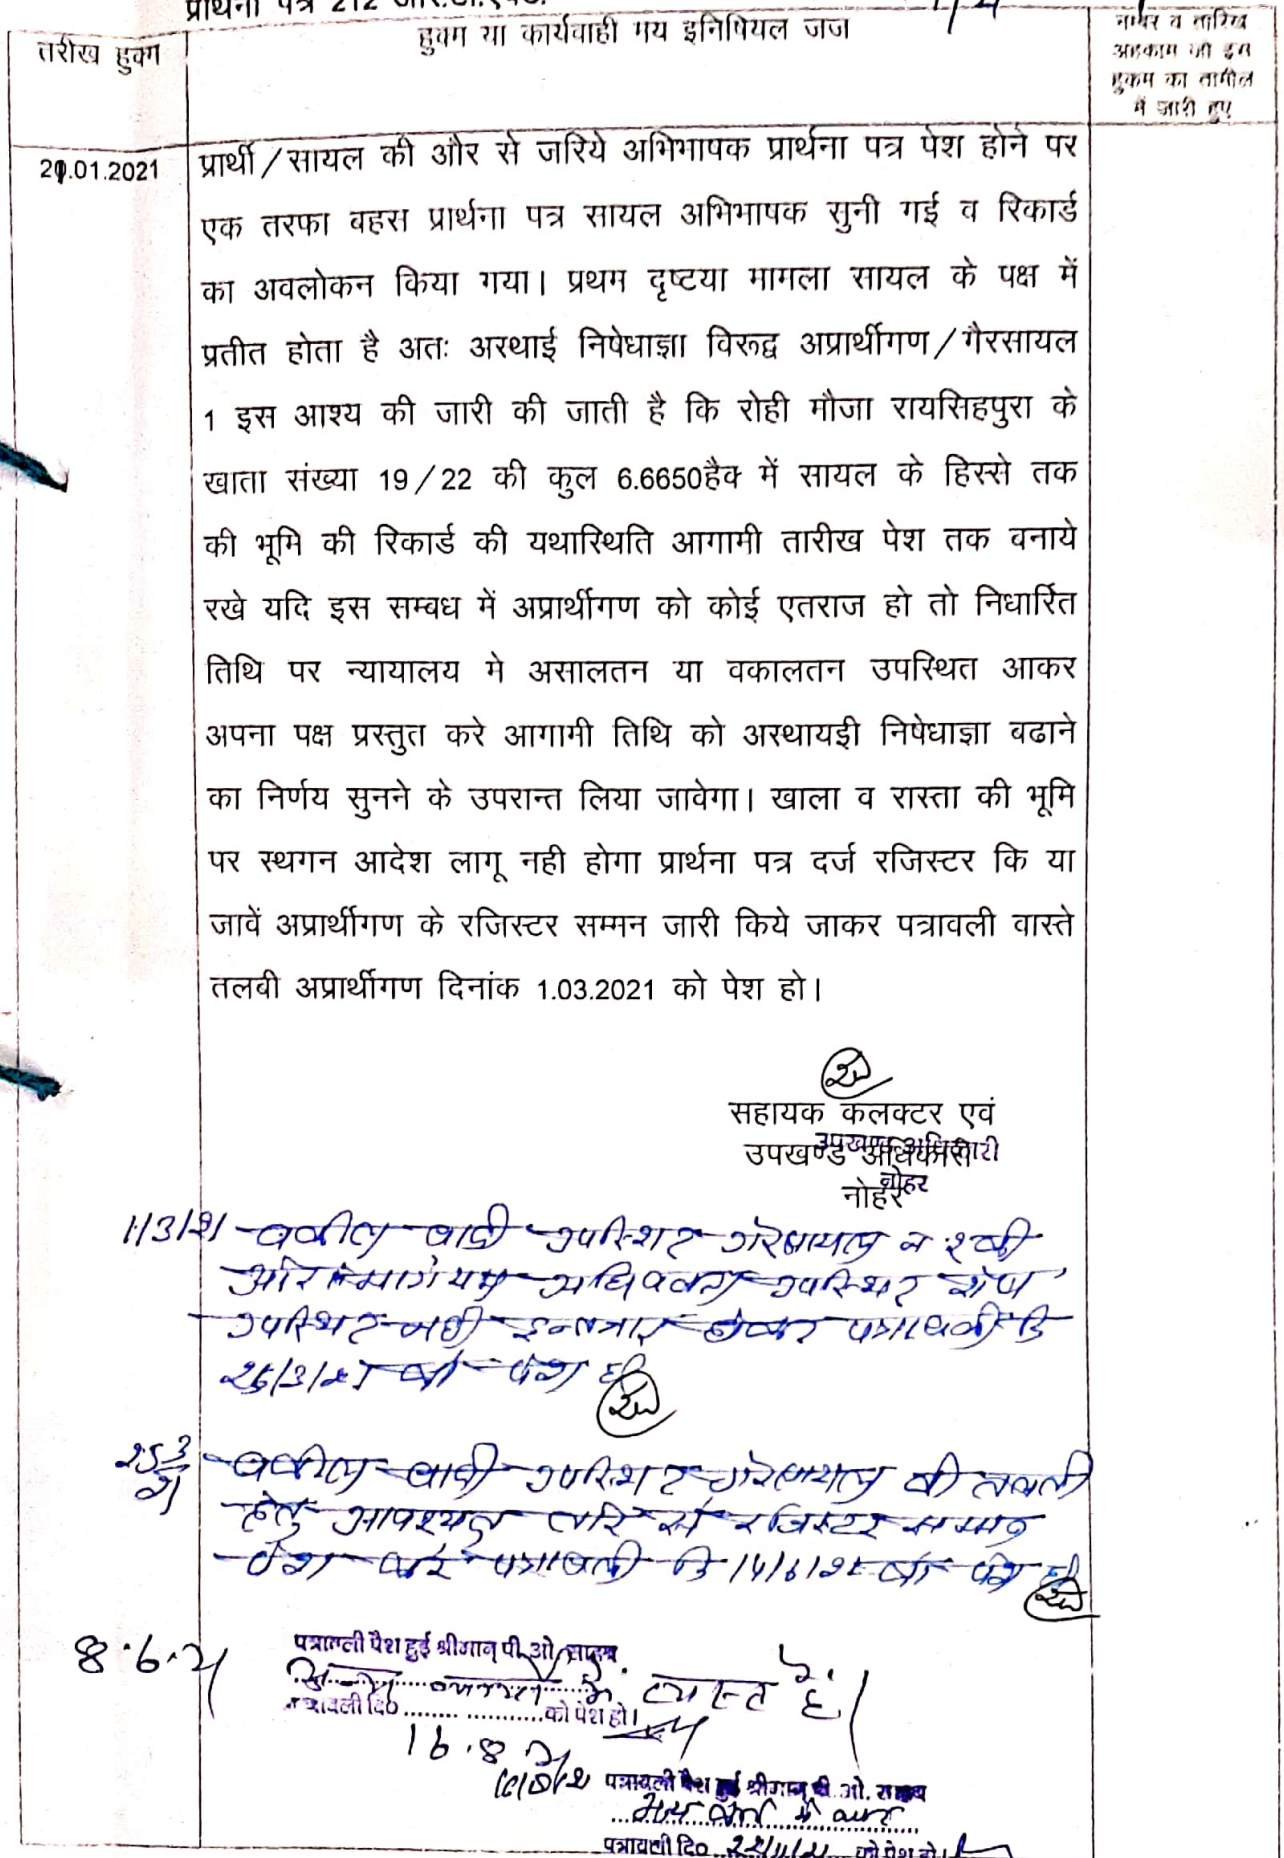 प्रार्थना पत्र 212 आर.टी.एक्ट
तरीख हुक्म
हुक्म या कार्यवाही मय इनिषियल जज
नम्बर व तारिख
अहकाम जो इस
हुकम का तामील
में जारी हुए
20.01.2021
प्रार्थी/सायल की और से जरिये अभिभापक प्रार्थना पत्र पेश होने पर
एक तरफा बहस प्रार्थना पत्र सायल अभिभापक सुनी गई व रिकार्ड
का अवलोकन किया गया। प्रथम दृष्टया मामला सायल के पक्ष में
प्रतीत होता है अतः अस्थाई निषेधाज्ञा विरूद्व अप्रार्थीगण/गैरसायल
1 इस आश्य की जारी की जाती है कि रोही मौजा रायसिहपुरा के
खाता संख्या 19/22 की कुल 6.6650हैक्‍ में सायल के हिस्से तक
की भूमि की रिकार्ड की यथास्थिति आगामी तारीख पेश तक बनाये
रखे यदि इस सम्बध में अप्रार्थीगण को कोई एतराज हो तो निधार्रित
तिथि पर न्यायालय मे असालतन या वकालतन उपस्थित आकर
अपना पक्ष प्रस्तुत करे आगामी तिथि को अस्थायइी निषेधाज्ञा बढाने
का निर्णय सुनने के उपरान्त लिया जावेगा। खाला व रास्ता की भूमि
पर स्थगन आदेश लागू नही होगा प्रार्थना पत्र दर्ज रजिस्टर कि या
जावें अप्रार्थीगण के रजिस्टर सम्मन जारी किये जाकर पत्रावली वास्ते
तलबी अप्रार्थीगण दिनांक 1.03.2021 को पेश हो।
सहायक कलक्टर एवं
उपखण्ड अधिकारी
उपखण्ड अधिकारी
नोहर
नोहर
1/3/21 वकील वादी उपस्थित गैरसायल न १ की
उपस्थित शेष
उपस्थित नही इन्तजार होकर पत्रावली दि
25/3/21 को पेश हो
25/3/21 वकील वादी उपस्थित गैरसायल की तलबी
हेतु आवश्यक रजिस्टर सम्मन
पेश करे पत्रावली दि 14/6/21 को पेश हो
8.6.21 पत्रावली पेश हुई श्रीमान् पी.ओ. साहब
में व्यस्त है।
पत्रावली दि० को पेश हो।
16.8.21
पत्रावली पेश हुई श्रीमान् पी. ओ. साहब
पत्रावली दि० को पेश हो।